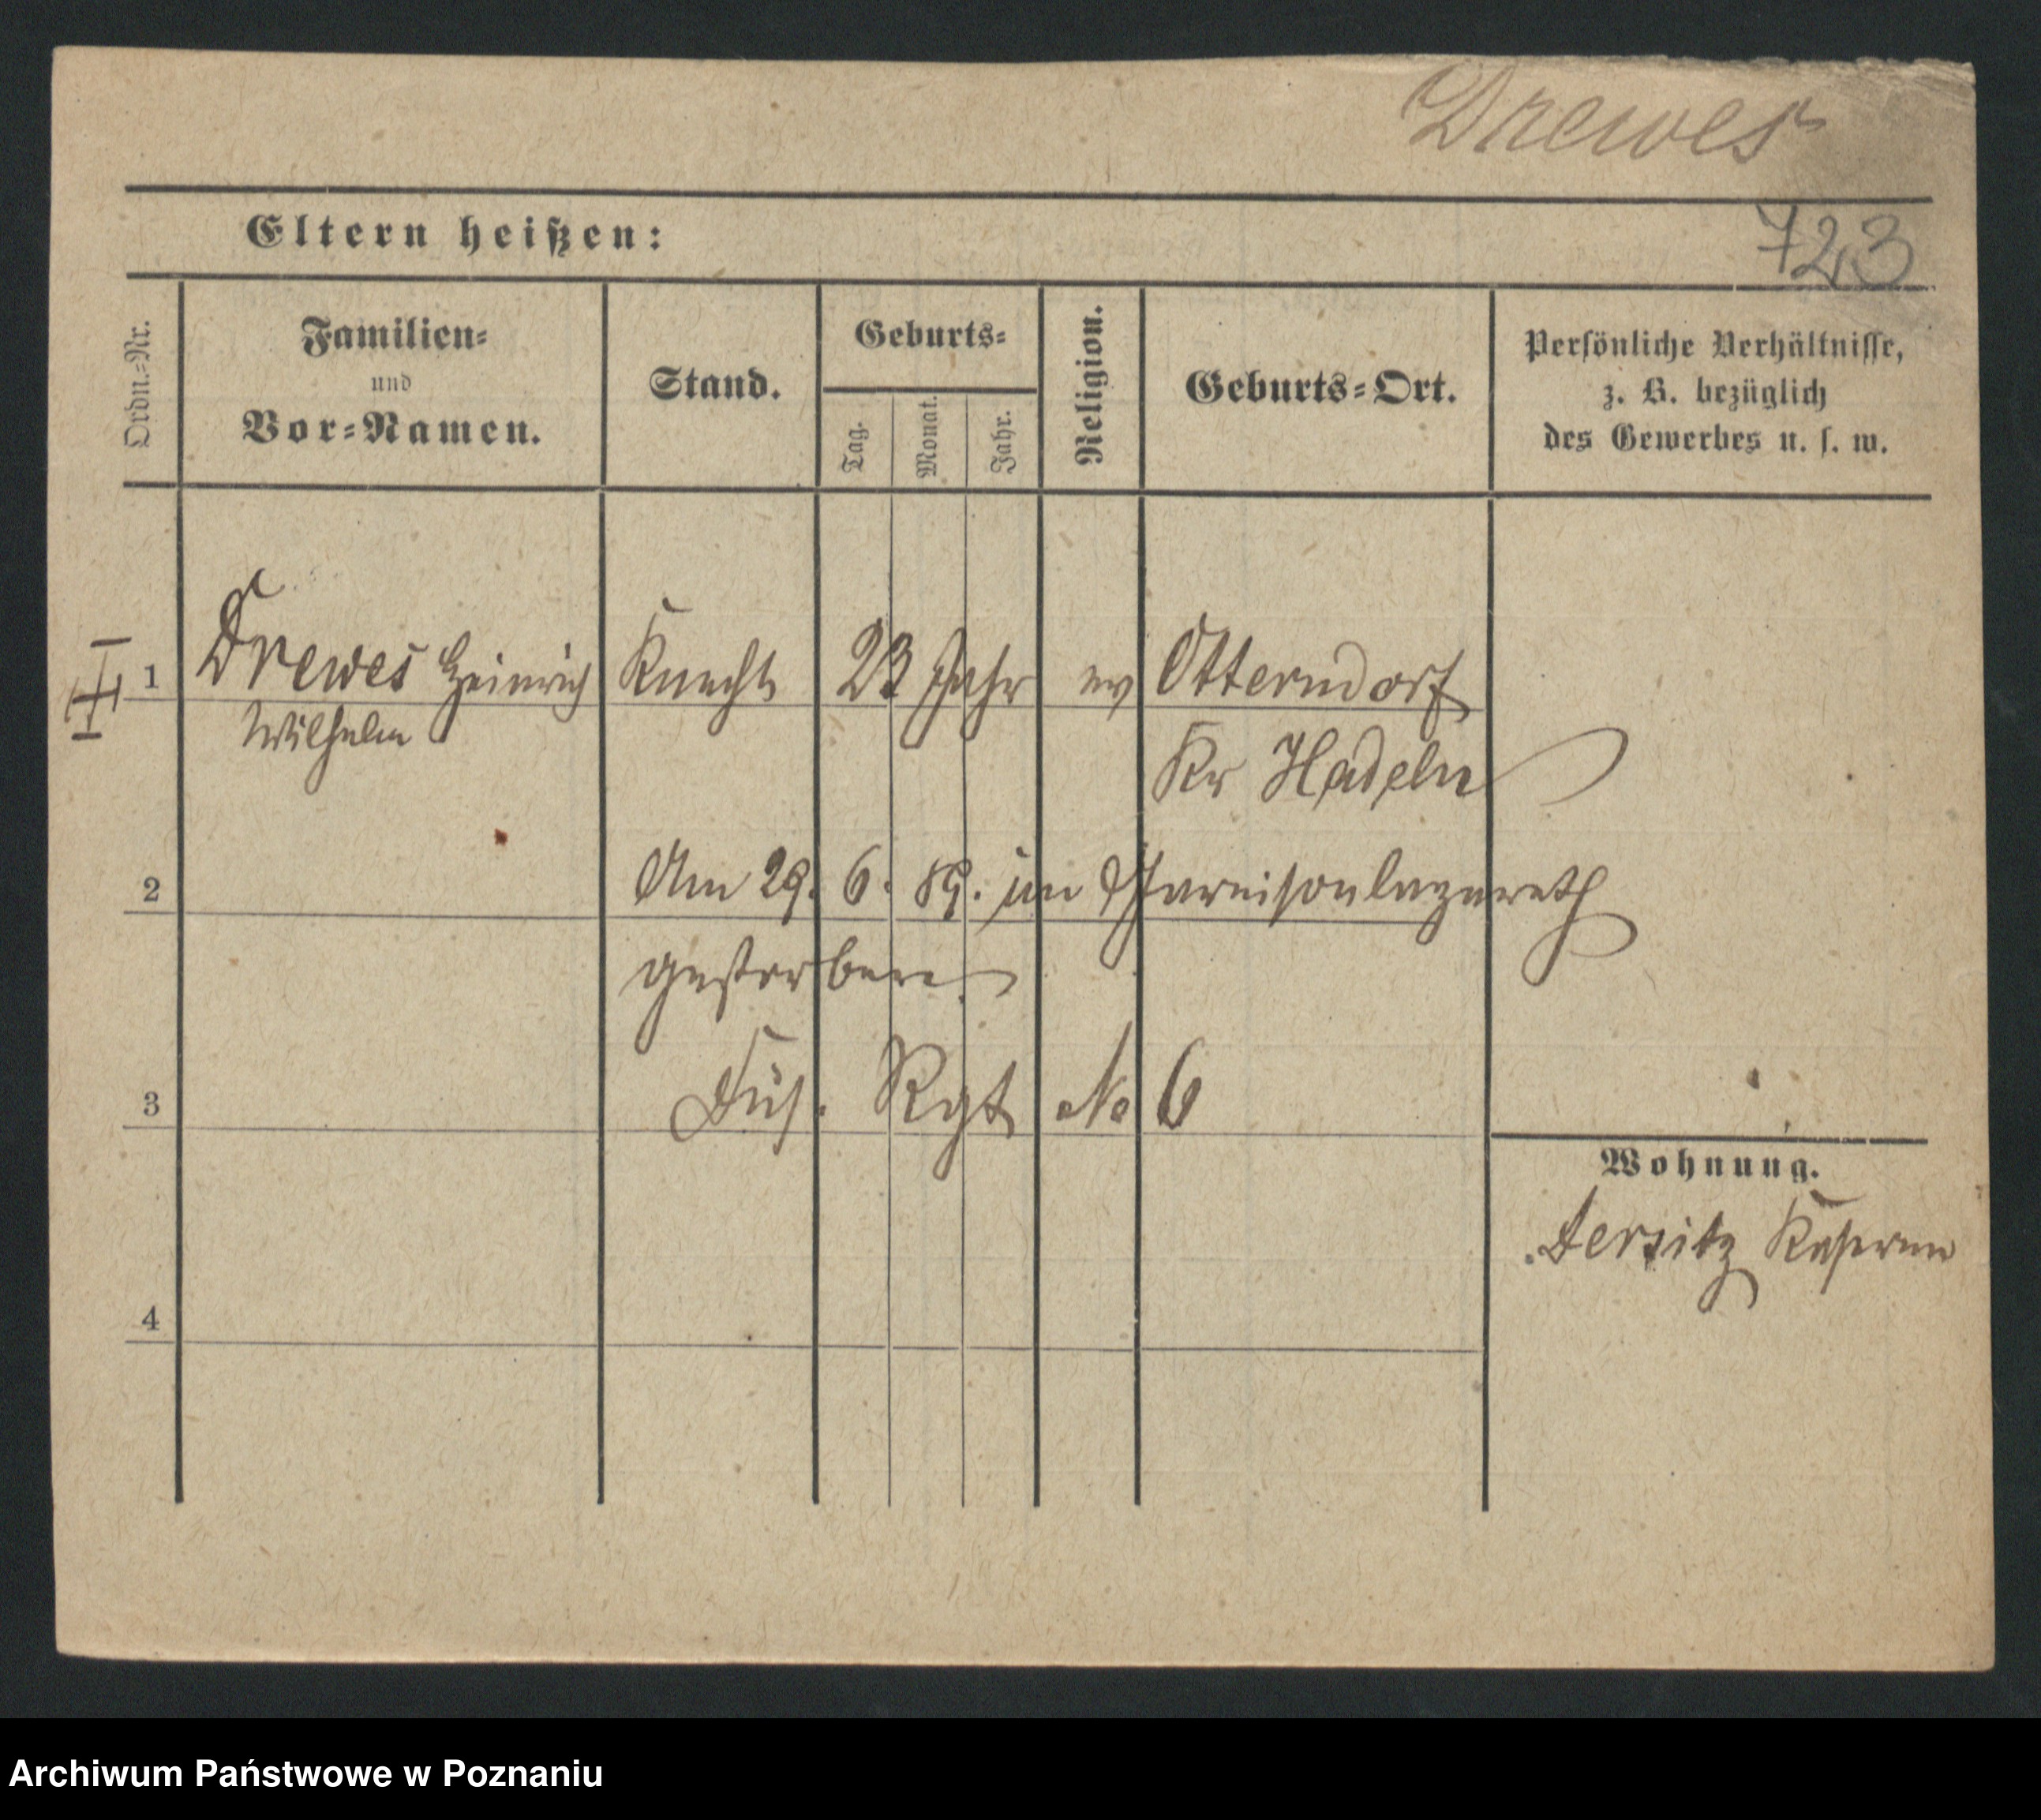 Drewes
Eltern heißen:
723
Ordn.-Nr.
Familien-
und
Vor-Namen.
Stand.
Geburts-
Tag.
Monat.
Jahr.
Religion.
Geburts-Ort.
Persönliche Verhältnisse,
z. B. bezüglich
des Gewerbes u. s. w.
1 Drewes Heinrich Knecht 23 Jahr ev Otterndorf
Wilhelm
Kr Hadeln
2 Am 29. 6. 89. im Garnisonlazareth
gestorben.
3 Füs. Rgt No 6
Wohnung.
Jersitz Kaserne
4
Archiwum Państwowe w Poznaniu